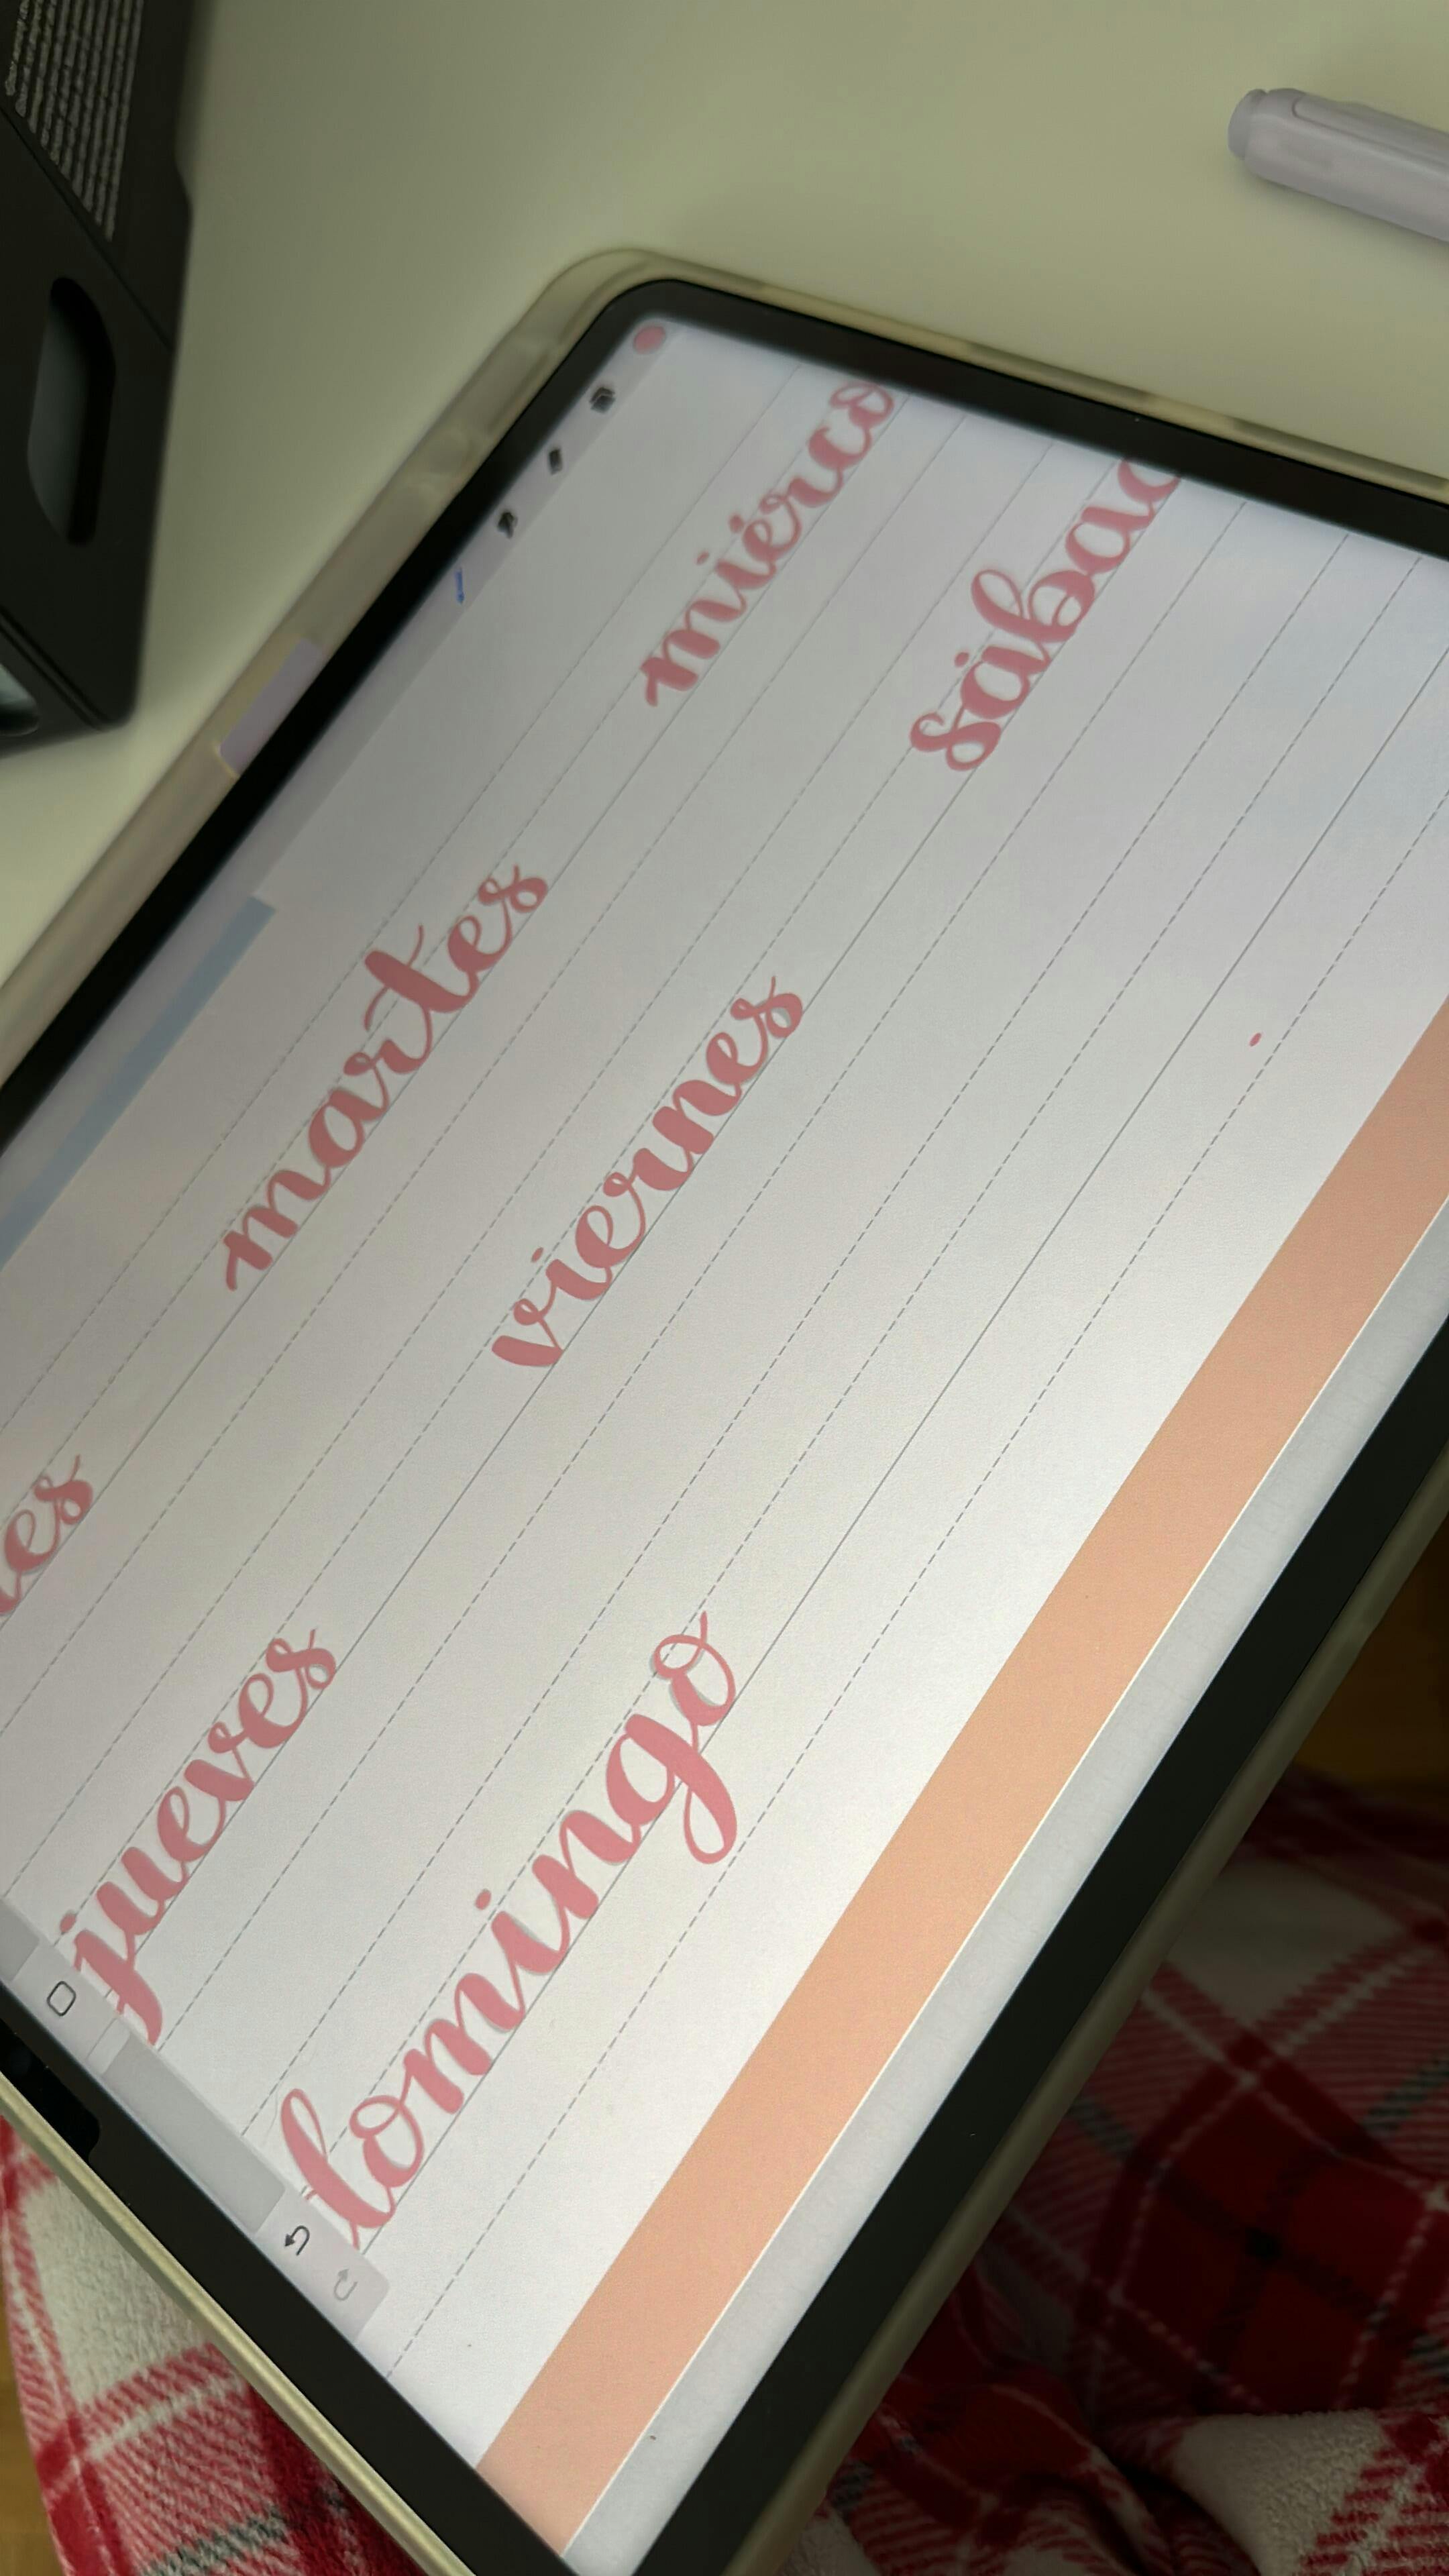 es martes miérco
jueves viernes sábad
domingo